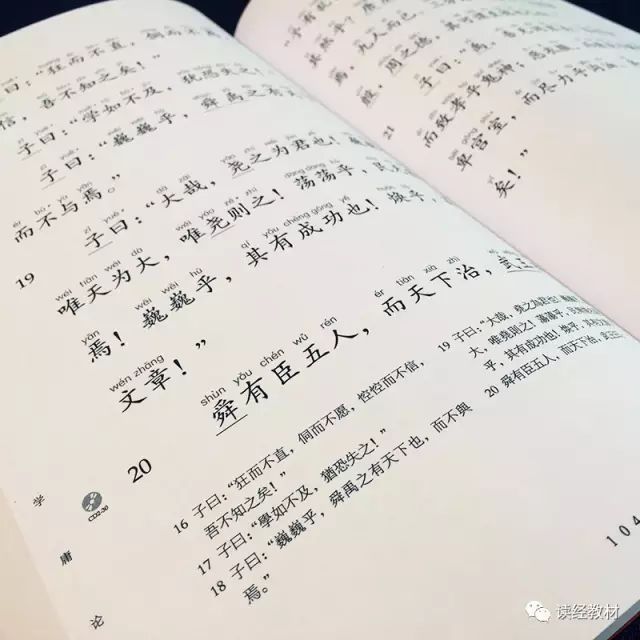 曰：“狂而不直，侗而不
信，吾不知之矣！”
子曰：“学如不及，犹恐失之！”
子曰：“巍巍乎，舜禹之有
ér bù yù yān
而不与焉。”
zǐ yuē
子曰：“大哉，尧之为君也！
19
wéi tiān wéi dà wéi yáo zé zhī dàng dàng hū
唯天为大，唯尧则之！荡荡乎，民
yān wēi wēi hū qí yǒu chéng gōng yě
焉！巍巍乎，其有成功也！焕乎，
wén zhāng
文章！”
20
shùn yǒu chén wǔ rén ér tiān xià zhì
舜有臣五人，而天下治，
16 子曰：“狂而不直，侗而不愿，悾悾而不信，
吾不知之矣！”
17 子曰：“學如不及，猶恐失之！”
18 子曰：“巍巍乎，舜禹之有天下也，而不與
焉。”
19 子曰：“大哉，堯之為君也！巍
大，唯堯則之！蕩蕩乎，民無
乎，其有成功也！煥乎，其
20 舜有臣五人，而天下治，武王
学庸论
CD2-30
子曰：“禹，
而致孝乎鬼神；
21
卑宫室，而尽力乎沟洫，
矣！”
104
读经教材